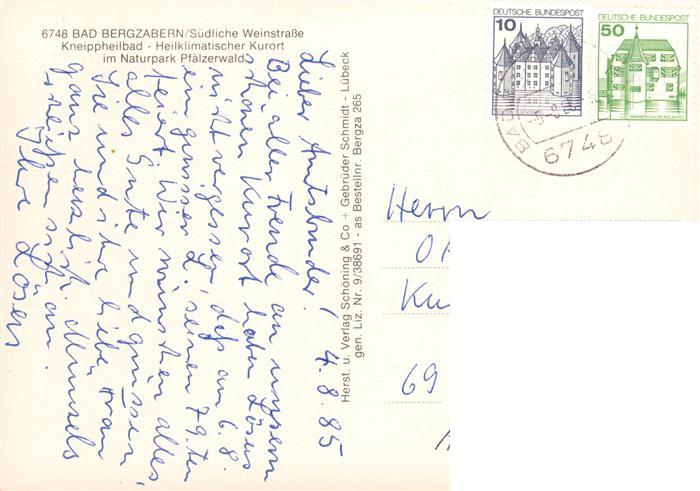 6748 BAD BERGZABERN/Südliche Weinstraße
Kneippheilbad - Heilklimatischer Kurort
im Naturpark Pfälzerwald
4.8.85
Lieber Amtsbruder!
Bei aller Freude an unserm
schönen Kurort haben Lösers
nicht vergessen, daß am 6.8.
ein gewisser L. seinen 79.ten
feiert. Wir wünschen alles,
alles Gute und grüssen
Sie und ihre liebe Frau
ganz herzlich.
schließen sich an.
Ihre Lösers
Herst. u. Verlag Schöning & Co + Gebrüder Schmidt - Lübeck
gen. Liz. Nr. 9/38691 - as Bestellnr. Bergza 265
10
DEUTSCHE BUNDESPOST
50
DEUTSCHE BUNDESPOST
WASSERSCHLOSS INZLINGEN
BAD
6748
Herrn
Ku
69